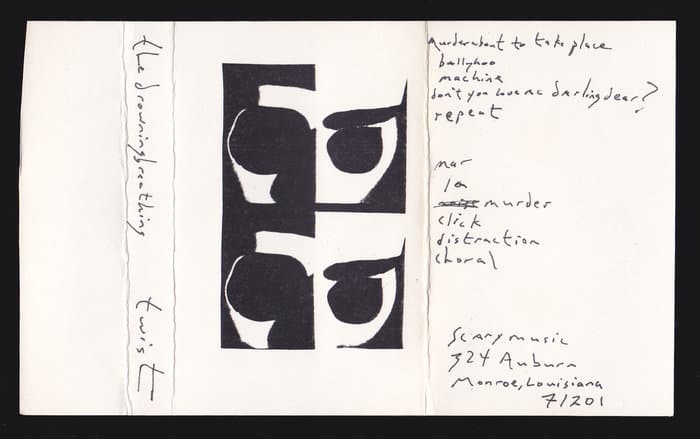 the drowningbreathing twist
murderabout to take place
ballyhoo
machine
don't you love me darlingdear?
repeat
mar
la
murder
click
distraction
choral
Scarymusic
324 Auburn
Monroe, Louisiana
71201